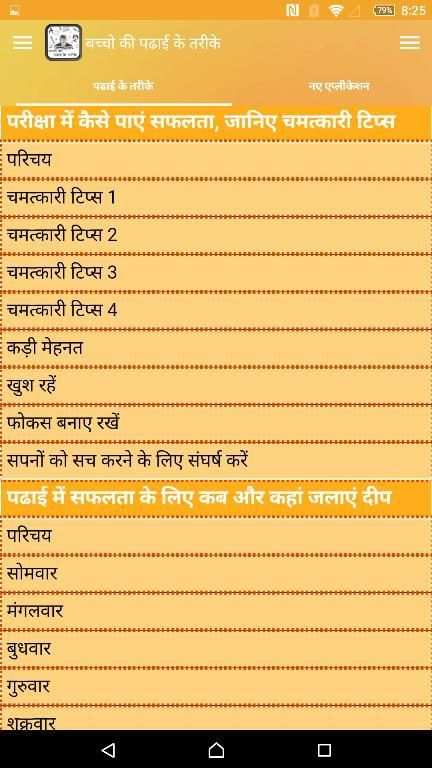 79% 8:25
बच्चो की पढाई के तरीके
पढाई के तरीके
नए एप्लीकेशन
परीक्षा में कैसे पाएं सफलता, जानिए चमत्कारी टिप्स
परिचय
चमत्कारी टिप्स 1
चमत्कारी टिप्स 2
चमत्कारी टिप्स 3
चमत्कारी टिप्स 4
कड़ी मेहनत
खुश रहें
फोकस बनाए रखें
सपनों को सच करने के लिए संघर्ष करें
पढाई में सफलता के लिए कब और कहां जलाएं दीप
परिचय
सोमवार
मंगलवार
बुधवार
गुरुवार
शुक्रवार